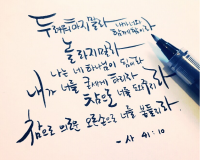 두려워하지말라
내가 너와 함께함이라
놀라지말라
나는 네 하나님이 됨이라
내가 너를 굳세게 하리라
참으로 너를 도와주리라
참으로 의로운 오른손으로 너를 붙들리라
- 사 41:10